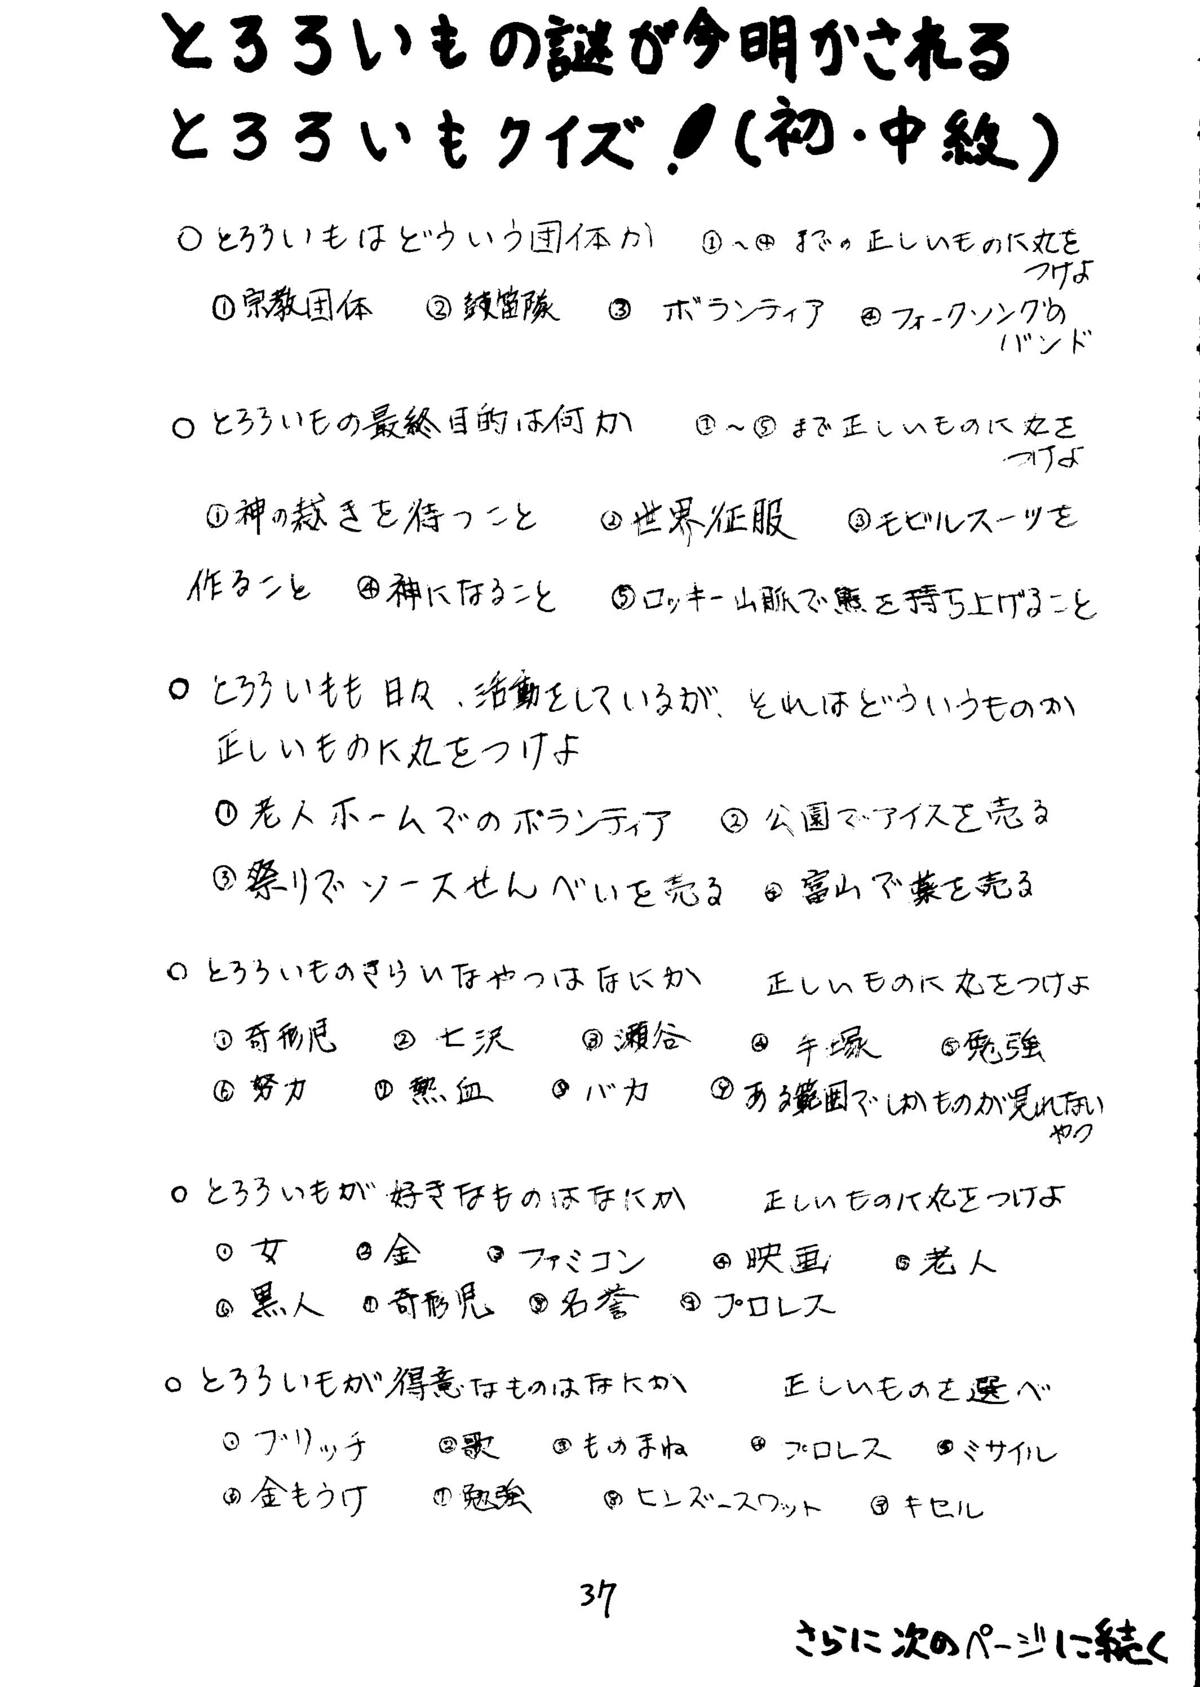 とろろいもの謎が今明かされる
とろろいもクイズ!(初・中級)
○とろろいもはどういう団体か ①～④までの正しいものに丸を
つけよ
①宗教団体 ②鼓笛隊 ③ボランティア ④フォークソングの
バンド
○とろろいもの最終目的は何か ①～⑤まで正しいものに丸を
つけよ
①神の裁きを待つこと ②世界征服 ③モビルスーツを
作ること ④神になること ⑤ロッキー山脈で熊を持ち上げること
○とろろいもも日々、活動をしているが、それはどういうものか
正しいものに丸をつけよ
①老人ホームでのボランティア ②公園でアイスを売る
③祭りでソースせんべいを売る ④富山で薬を売る
○とろろいものきらいなやつはなにか 正しいものに丸をつけよ
①奇形児 ②七沢 ③瀬谷 ④手塚 ⑤勉強
⑥努力 ⑦熱血 ⑧バカ ⑨ある範囲でしかものが見れない
やつ
○とろろいもが好きなものはなにか 正しいものに丸をつけよ
①女 ②金 ③ファミコン ④映画 ⑤老人
⑥黒人 ⑦奇形児 ⑧名誉 ⑨プロレス
○とろろいもが得意なものはなにか 正しいものを選べ
①ブリッヂ ②歌 ③ものまね ④プロレス ⑤ミサイル
⑥金もうけ ⑦勉強 ⑧ヒンズースワット ⑨キセル
37
さらに次のページに続く